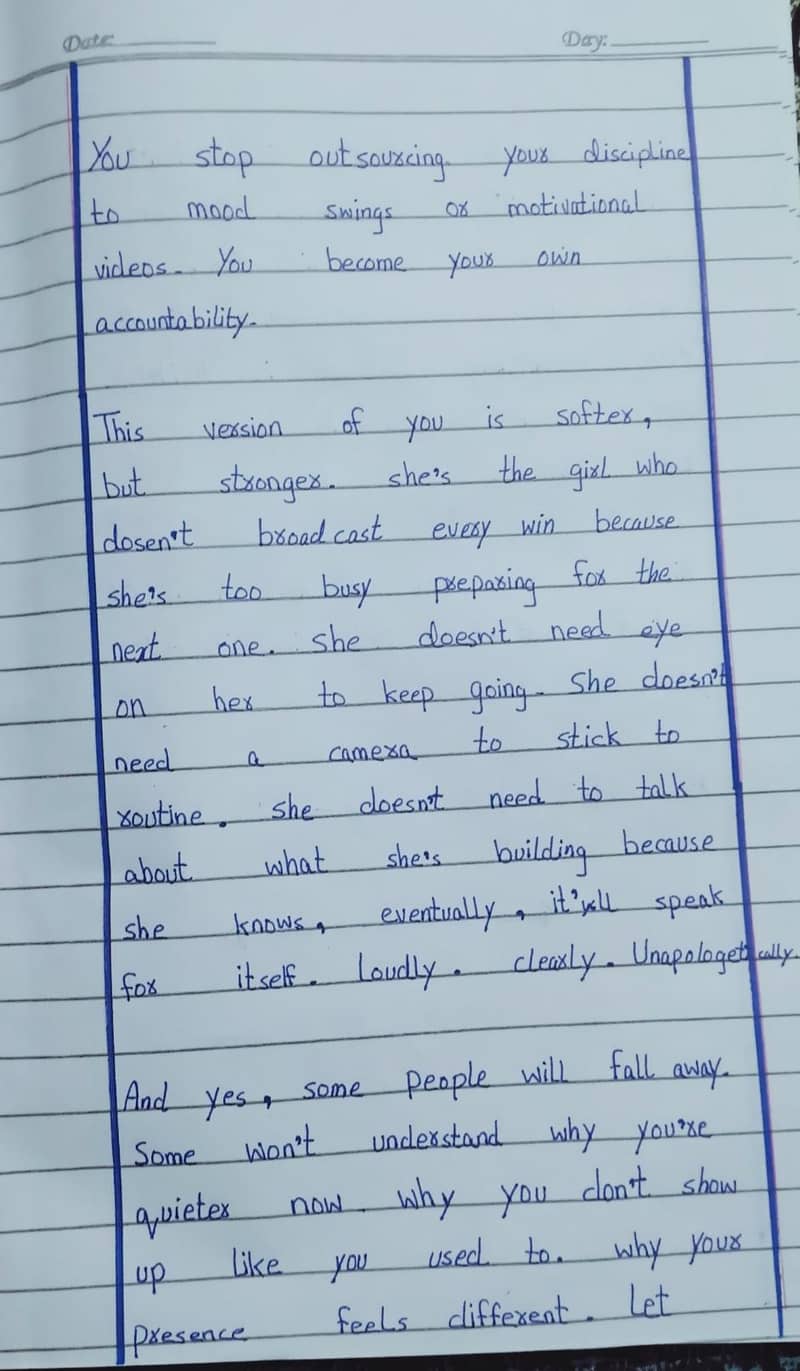 Date
Day:
You stop outsourcing your discipline
to mood swings or motivational
videos. You become your own
accountability.
This version of you is softer,
but stronger. she's the girl who
dosen't broadcast every win because
she's too busy preparing for the
next one. she doesn't need eye
on her to keep going. She doesn't
need a camera to stick to
routine. she doesn't need to talk
about what she's building because
she knows, eventually, it'll speak
for itself. Loudly. clearly. Unapologetically.
And yes, some people will fall away.
Some won't understand why you're
quieter now. why you don't show
up like you used to. why your
presence feels different. Let